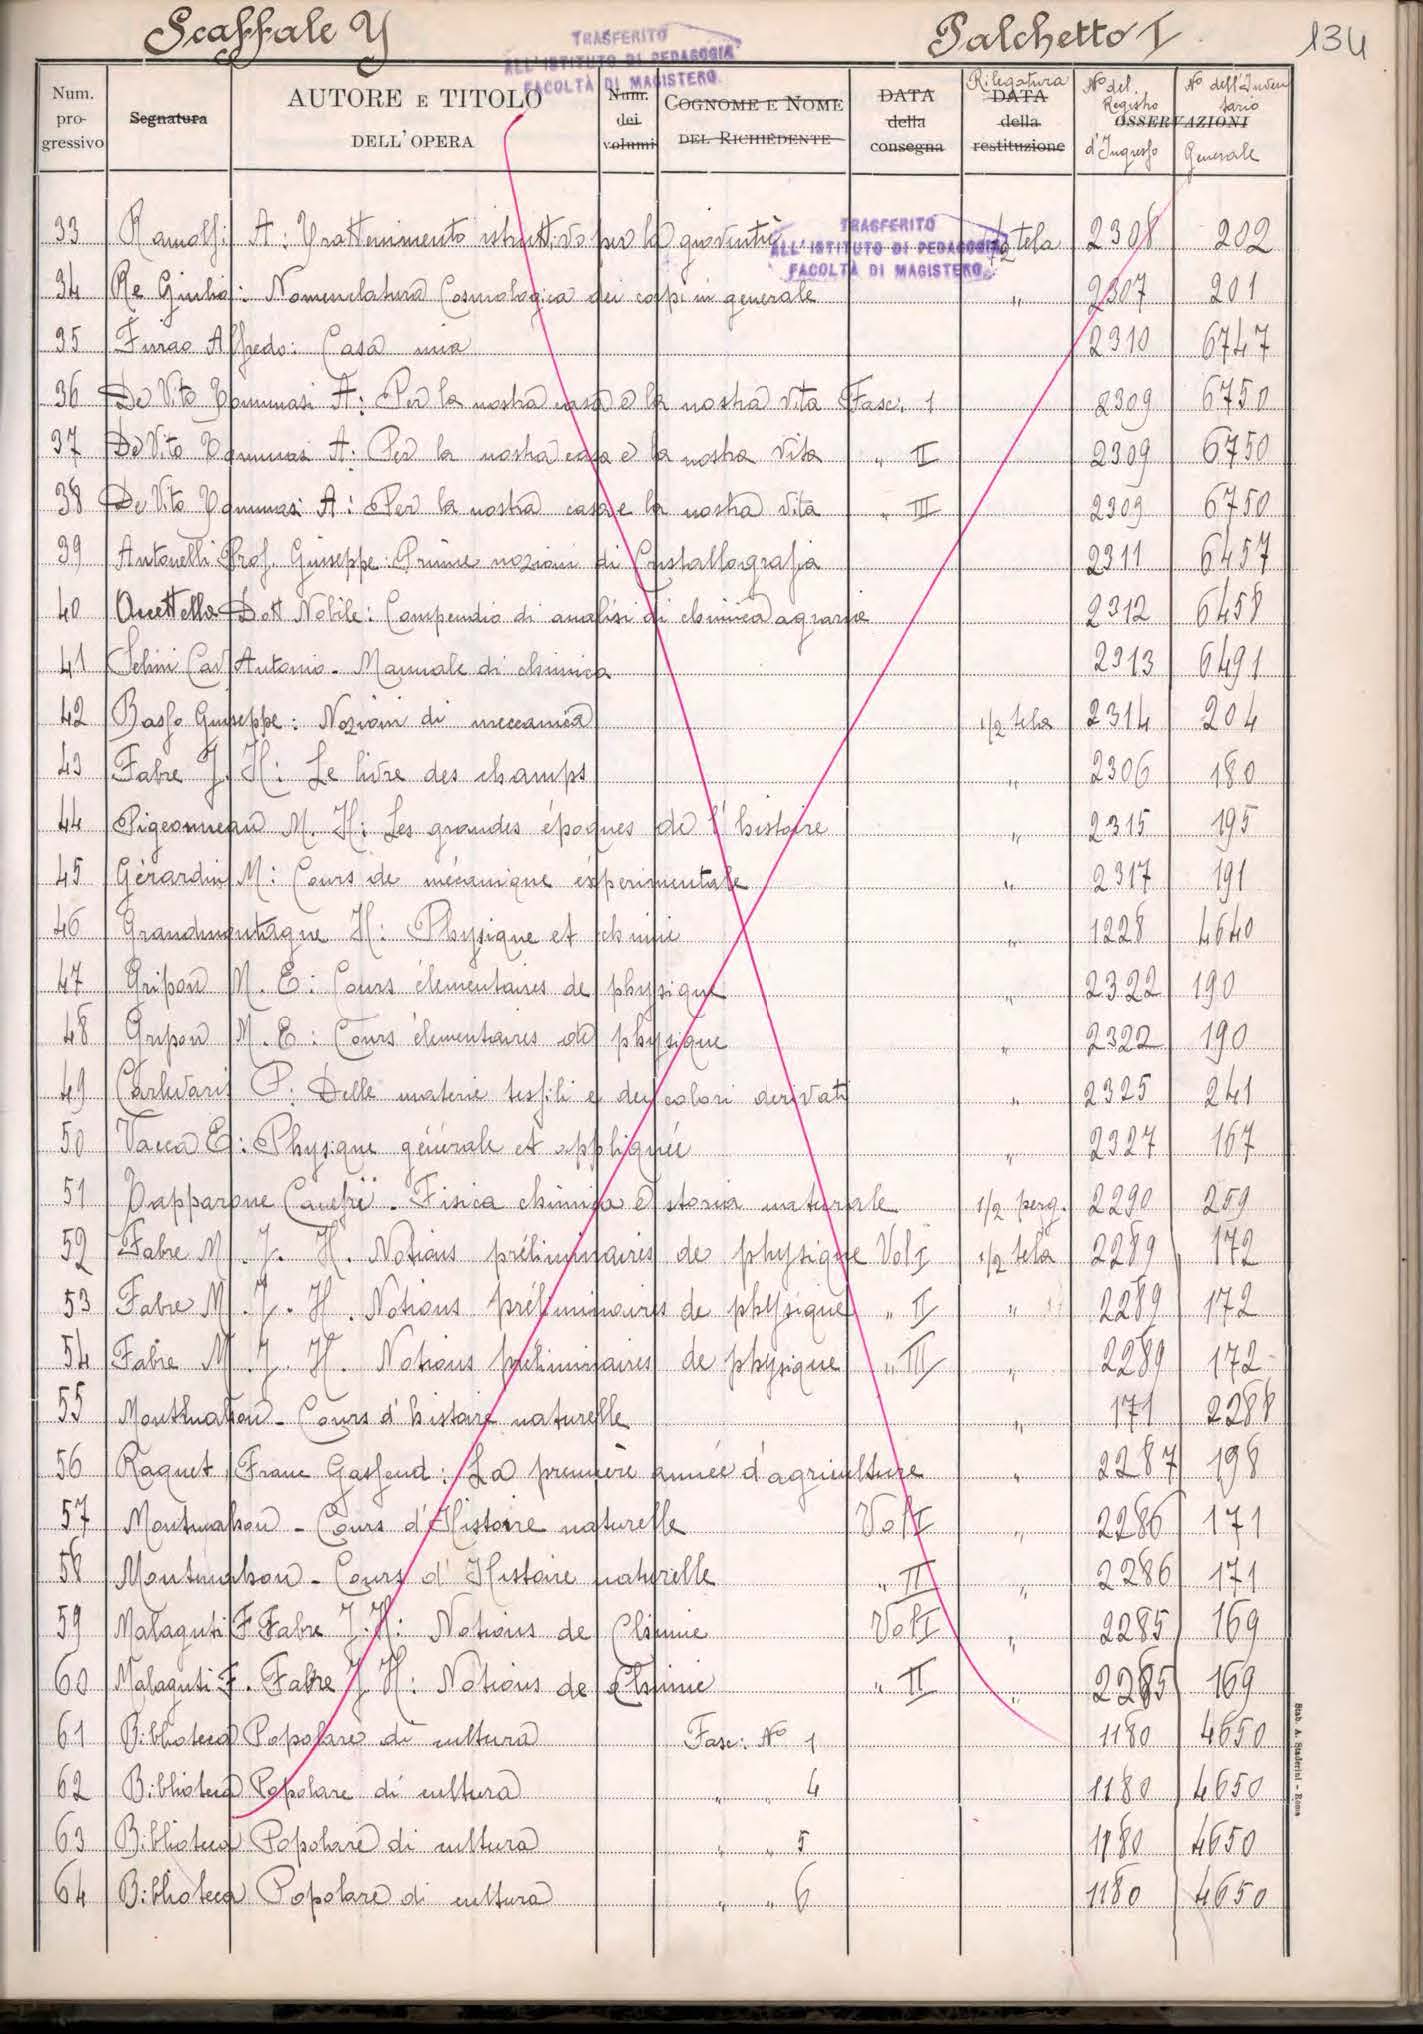 Scaffale Y Palchetto I 134
TRASFERITO
ALL'ISTITUTO DI PEDAGOGIA
FACOLTÀ DI MAGISTERO
Num. progressivo Segnatura AUTORE E TITOLO DELL'OPERA Num. dei volumi COGNOME E NOME DEL RICHIEDENTE DATA della consegna Rilegatura DATA della restituzione No del Registro d'Ingresso OSSERVAZIONI No dell'Inventario Generale
TRASFERITO
ALL'ISTITUTO DI PEDAGOGIA
FACOLTÀ DI MAGISTERO
33 A: Trattenimento istruttivo per la gioventù 1/2 tela 2308 202
34 Re Giulio: Nomenclatura Cosmologica dei corpi in generale " 2307 201
35 Firrao Alfredo: Casa mia 2310 6747
36 De Vito Tommasi A: Per la nostra casa e la nostra vita Fasc. 1 2309 6750
37 De Vito Tommasi A: Per la nostra casa e la nostra vita " II 2309 6750
38 De Vito Tommasi A: Per la nostra casa e la nostra vita " III 2309 6750
39 Antonelli Prof. Giuseppe: Prime nozioni di Cristallografia 2311 6457
40 Dott Nobile: Compendio di analisi di chimica agraria 2312 6458
41 Selmi Cav Antonio - Manuale di chimica 2313 6491
42 Basso Giuseppe: Nozioni di meccanica 1/2 tela 2314 204
43 Fabre J. H: Le livre des champs " 2306 180
44 Pigeonneau M. H: Les grandes époques de l'histoire " 2315 195
45 Gérardin M: Cours de mécanique éxperimentale " 2317 191
46 Grandmontagne H: Physique et chimie " 1228 4640
47 Gripon M. E: Cours élementaires de physique " 2322 190
48 Gripon M. E: Cours élementaires de physique " 2322 190
49 Carlevaris P: Delle materie tessili e dei colori derivati " 2325 241
50 Vacca E: Physique générale et appliquée " 2327 167
51 Tapparone Canefri. Fisica chimica e storia naturale 1/2 perg. 2290 259
52 Fabre M. J. H. Notions préliminaires de physique Vol I 1/2 tela 2289 172
53 Fabre M. J. H. Notions préliminaires de physique " II " 2289 172
54 Fabre M. J. H. Notions préliminaires de physique " III " 2289 172
55 Montmahou - Cours d'histoire naturelle " 171 2288
56 Raquet, Franc Gassend: La première année d'agriculture " 2287 198
57 Montmahou - Cours d'Histoire naturelle Vol I " 2286 171
58 Montmahou - Cours d'Histoire naturelle " II " 2286 171
59 Malaguti F Fabre J. H: Notions de Chimie Vol I " 2285 169
60 Malaguti F. Fabre J H: Notions de Chimie " II " 2285 169
61 Biblioteca Popolare di cultura Fasc: No 1 1180 4650
62 Biblioteca Popolare di cultura " " 4 1180 4650
63 Biblioteca Popolare di cultura " " 5 1180 4650
64 Biblioteca Popolare di cultura " " 6 1180 4650
Stab. A. Staderini - Roma